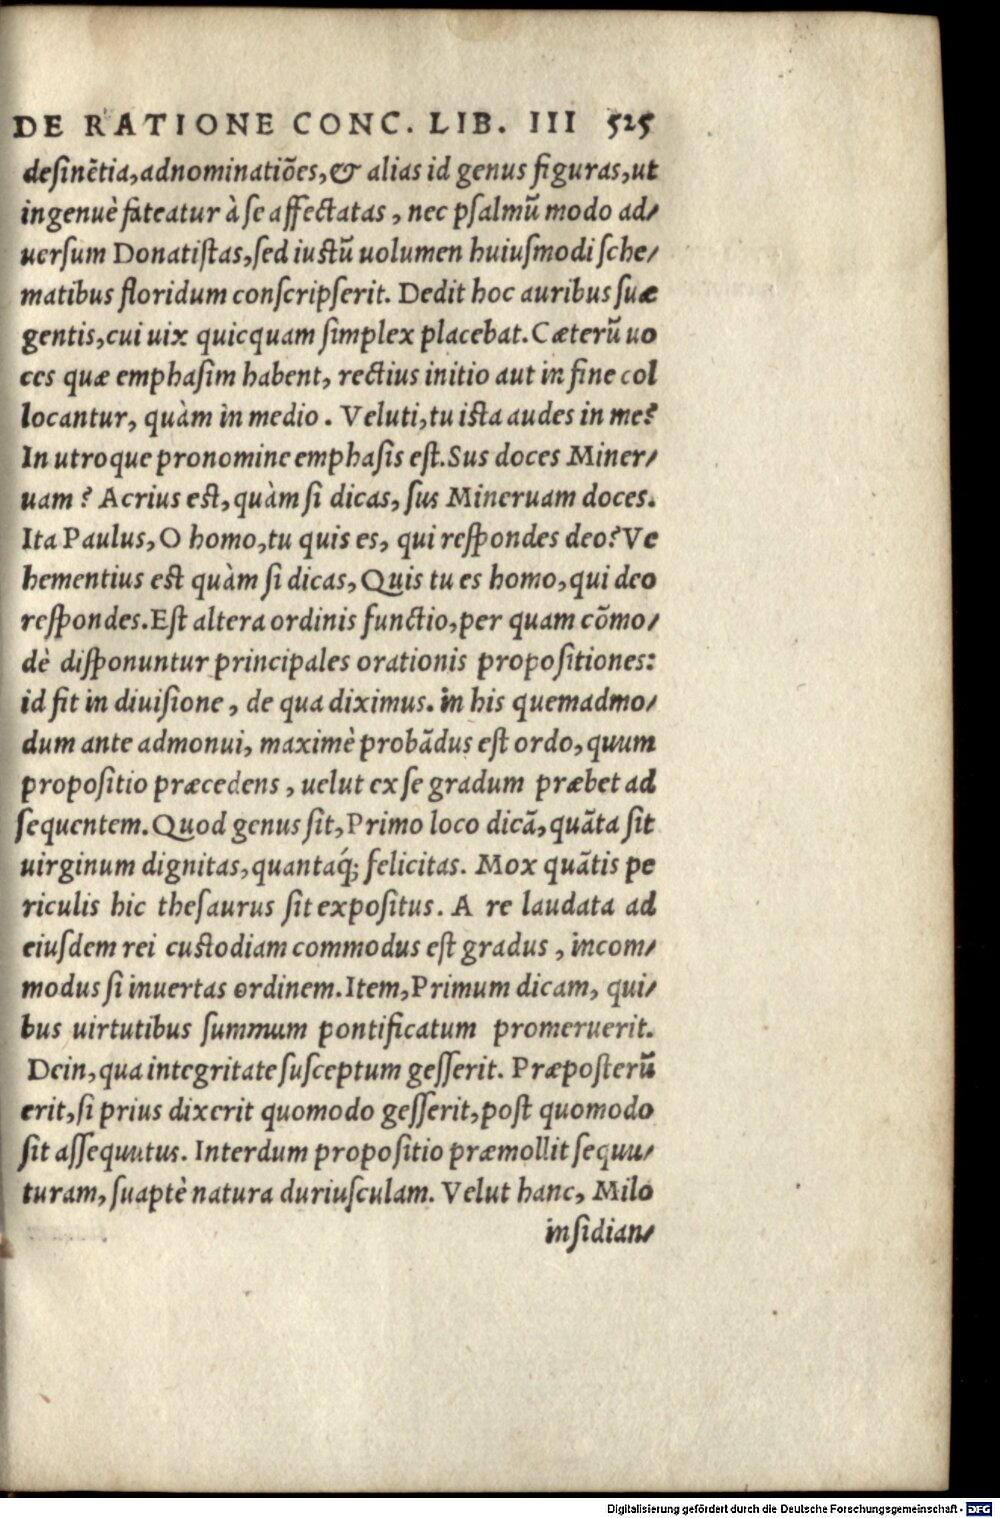 DE RATIONE CONC. LIB. III 525
desinẽtia, adnominatiões, & alias id genus figuras, ut
ingenuè fateatur à se affectatas, nec psalmũ modo ad/
uersum Donatistas, sed iustũ uolumen huiusmodi sche/
matibus floridum conscripserit. Dedit hoc auribus suæ
gentis, cui uix quicquam simplex placebat. Cæterũ uo
ces quæ emphasim habent, rectius initio aut in fine col
locantur, quàm in medio. Veluti, tu ista audes in me?
In utroque pronomine emphasis est. Sus doces Miner/
uam? Acrius est, quàm si dicas, sus Mineruam doces.
Ita Paulus, O homo, tu quis es, qui respondes deo? Ve
hementius est quàm si dicas, Quis tu es homo, qui deo
respondes. Est altera ordinis functio, per quam cõmo/
dè disponuntur principales orationis propositiones:
id fit in diuisione, de qua diximus. in his quemadmo/
dum ante admonui, maximè probãdus est ordo, quum
propositio præcedens, uelut ex se gradum præbet ad
sequentem. Quod genus sit, Primo loco dicã, quãta sit
uirginum dignitas, quantaq́; felicitas. Mox quãtis pe
riculis hic thesaurus sit expositus. A re laudata ad
eiusdem rei custodiam commodus est gradus, incom/
modus si inuertas ordinem. Item, Primum dicam, qui/
bus uirtutibus summum pontificatum promeruerit.
Dein, qua integritate susceptum gesserit. Præposterũ
erit, si prius dixerit quomodo gesserit, post quomodo
sit assequutus. Interdum propositio præmollit sequu/
turam, suaptè natura duriusculam. Velut hanc, Milo
insidian/
Digitalisierung gefördert durch die Deutsche Forschungsgemeinschaft - DFG